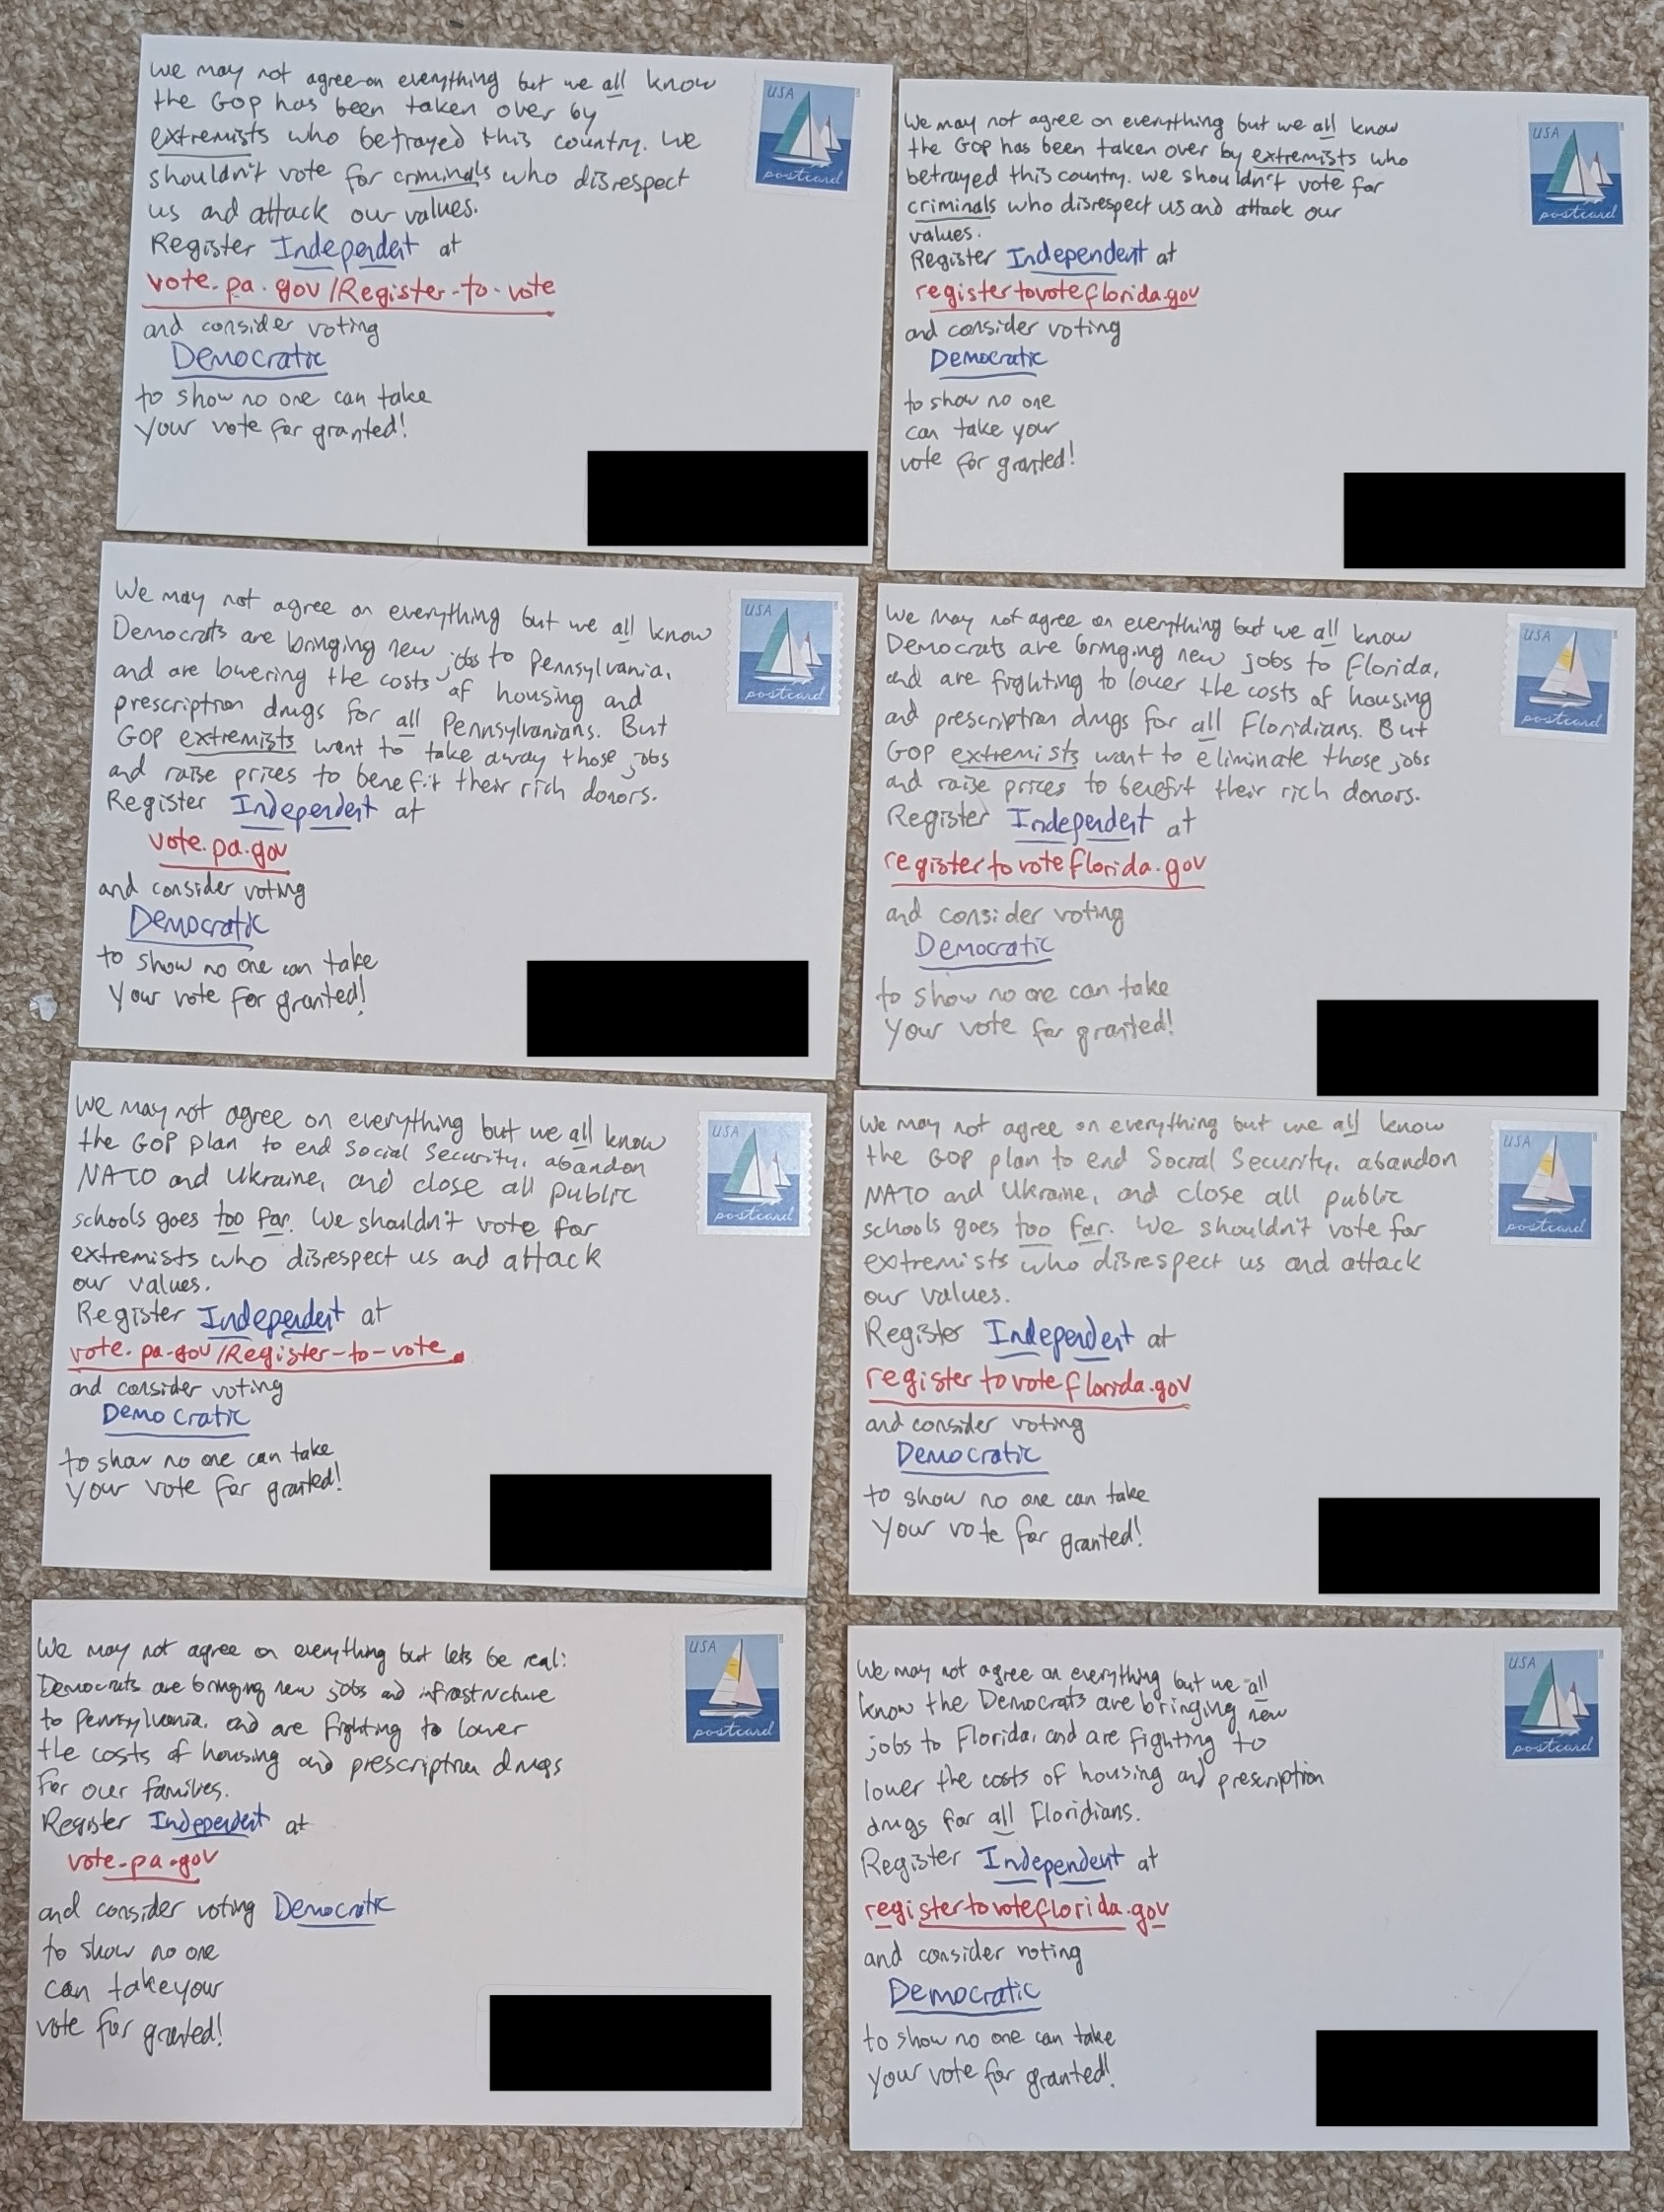 We may not agree on everything but we all know
the GOP has been taken over by
extremists who betrayed this country. We
shouldn't vote for criminals who disrespect
us and attack our values.
Register Independent at
vote.pa.gov/Register-to-vote
and consider voting
Democratic
to show no one can take
your vote for granted!
USA
postcard
We may not agree on everything but we all know
the GOP has been taken over by extremists who
betrayed this country. We shouldn't vote for
criminals who disrespect us and attack our
values.
Register Independent at
registertovoteflorida.gov
and consider voting
Democratic
to show no one
can take your
vote for granted!
USA
postcard
We may not agree on everything but we all know
Democrats are bringing new jobs to Pennsylvania,
and are lowering the costs of housing and
prescription drugs for all Pennsylvanians. But
GOP extremists want to take away those jobs
and raise prices to benefit their rich donors.
Register Independent at
vote.pa.gov
and consider voting
Democratic
to show no one can take
your vote for granted!
USA
postcard
We may not agree on everything but we all know
Democrats are bringing new jobs to Florida,
and are fighting to lower the costs of housing
and prescription drugs for all Floridians. But
GOP extremists want to eliminate those jobs
and raise prices to benefit their rich donors.
Register Independent at
registertovoteflorida.gov
and consider voting
Democratic
to show no one can take
your vote for granted!
USA
postcard
We may not agree on everything but we all know
the GOP plan to end Social Security, abandon
NATO and Ukraine, and close all public
schools goes too far. We shouldn't vote for
extremists who disrespect us and attack
our values.
Register Independent at
vote.pa.gov/Register-to-vote
and consider voting
Democratic
to show no one can take
your vote for granted!
USA
postcard
We may not agree on everything but we all know
the GOP plan to end Social Security, abandon
NATO and Ukraine, and close all public
schools goes too far. We shouldn't vote for
extremists who disrespect us and attack
our values.
Register Independent at
registertovoteflorida.gov
and consider voting
Democratic
to show no one can take
your vote for granted!
USA
postcard
We may not agree on everything but lets be real:
Democrats are bringing new jobs and infrastructure
to Pennsylvania, and are fighting to lower
the costs of housing and prescription drugs
for our families.
Register Independent at
vote.pa.gov
and consider voting Democratic
to show no one
can take your
vote for granted!
USA
postcard
We may not agree on everything but we all
know the Democrats are bringing new
jobs to Florida, and are fighting to
lower the costs of housing and prescription
drugs for all Floridians.
Register Independent at
registertovoteflorida.gov
and consider voting
Democratic
to show no one can take
your vote for granted!
USA
postcard